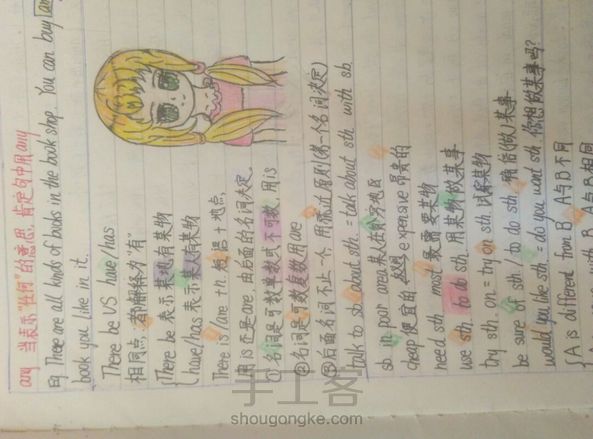 any 当表示"任何"的意思，肯定句中用any
eg There are all kinds of books in the book shop. You can buy any
book you like in it.
There be VS have/has
相同点：都解释为"有"
There be 表示某地有某物
have/has 表示某人有某物
There is/are +n. 短语+地点.
用is还是are 由后面的名词决定.
①名词是可数单数或不可数，用is
②名词是可数复数用are
③后面名词不止一个，用就近原则(第一个名词决定)
talk to sb about sth. = talk about sth. with sb.
sb. in poor area 某人在贫穷地区
cheap 便宜的 expensive 昂贵的
need sth most 最需要某物
use sth. to do sth. 用某物做某事
try sth. on = try on sth. 试穿某物
be sure of sth / to do sth. 确信(做)某事
would you like sth. = do you want sth. 你想做某事吗?
A is different from B A与B不同
with B A与B相同
手工客
shougongke.com